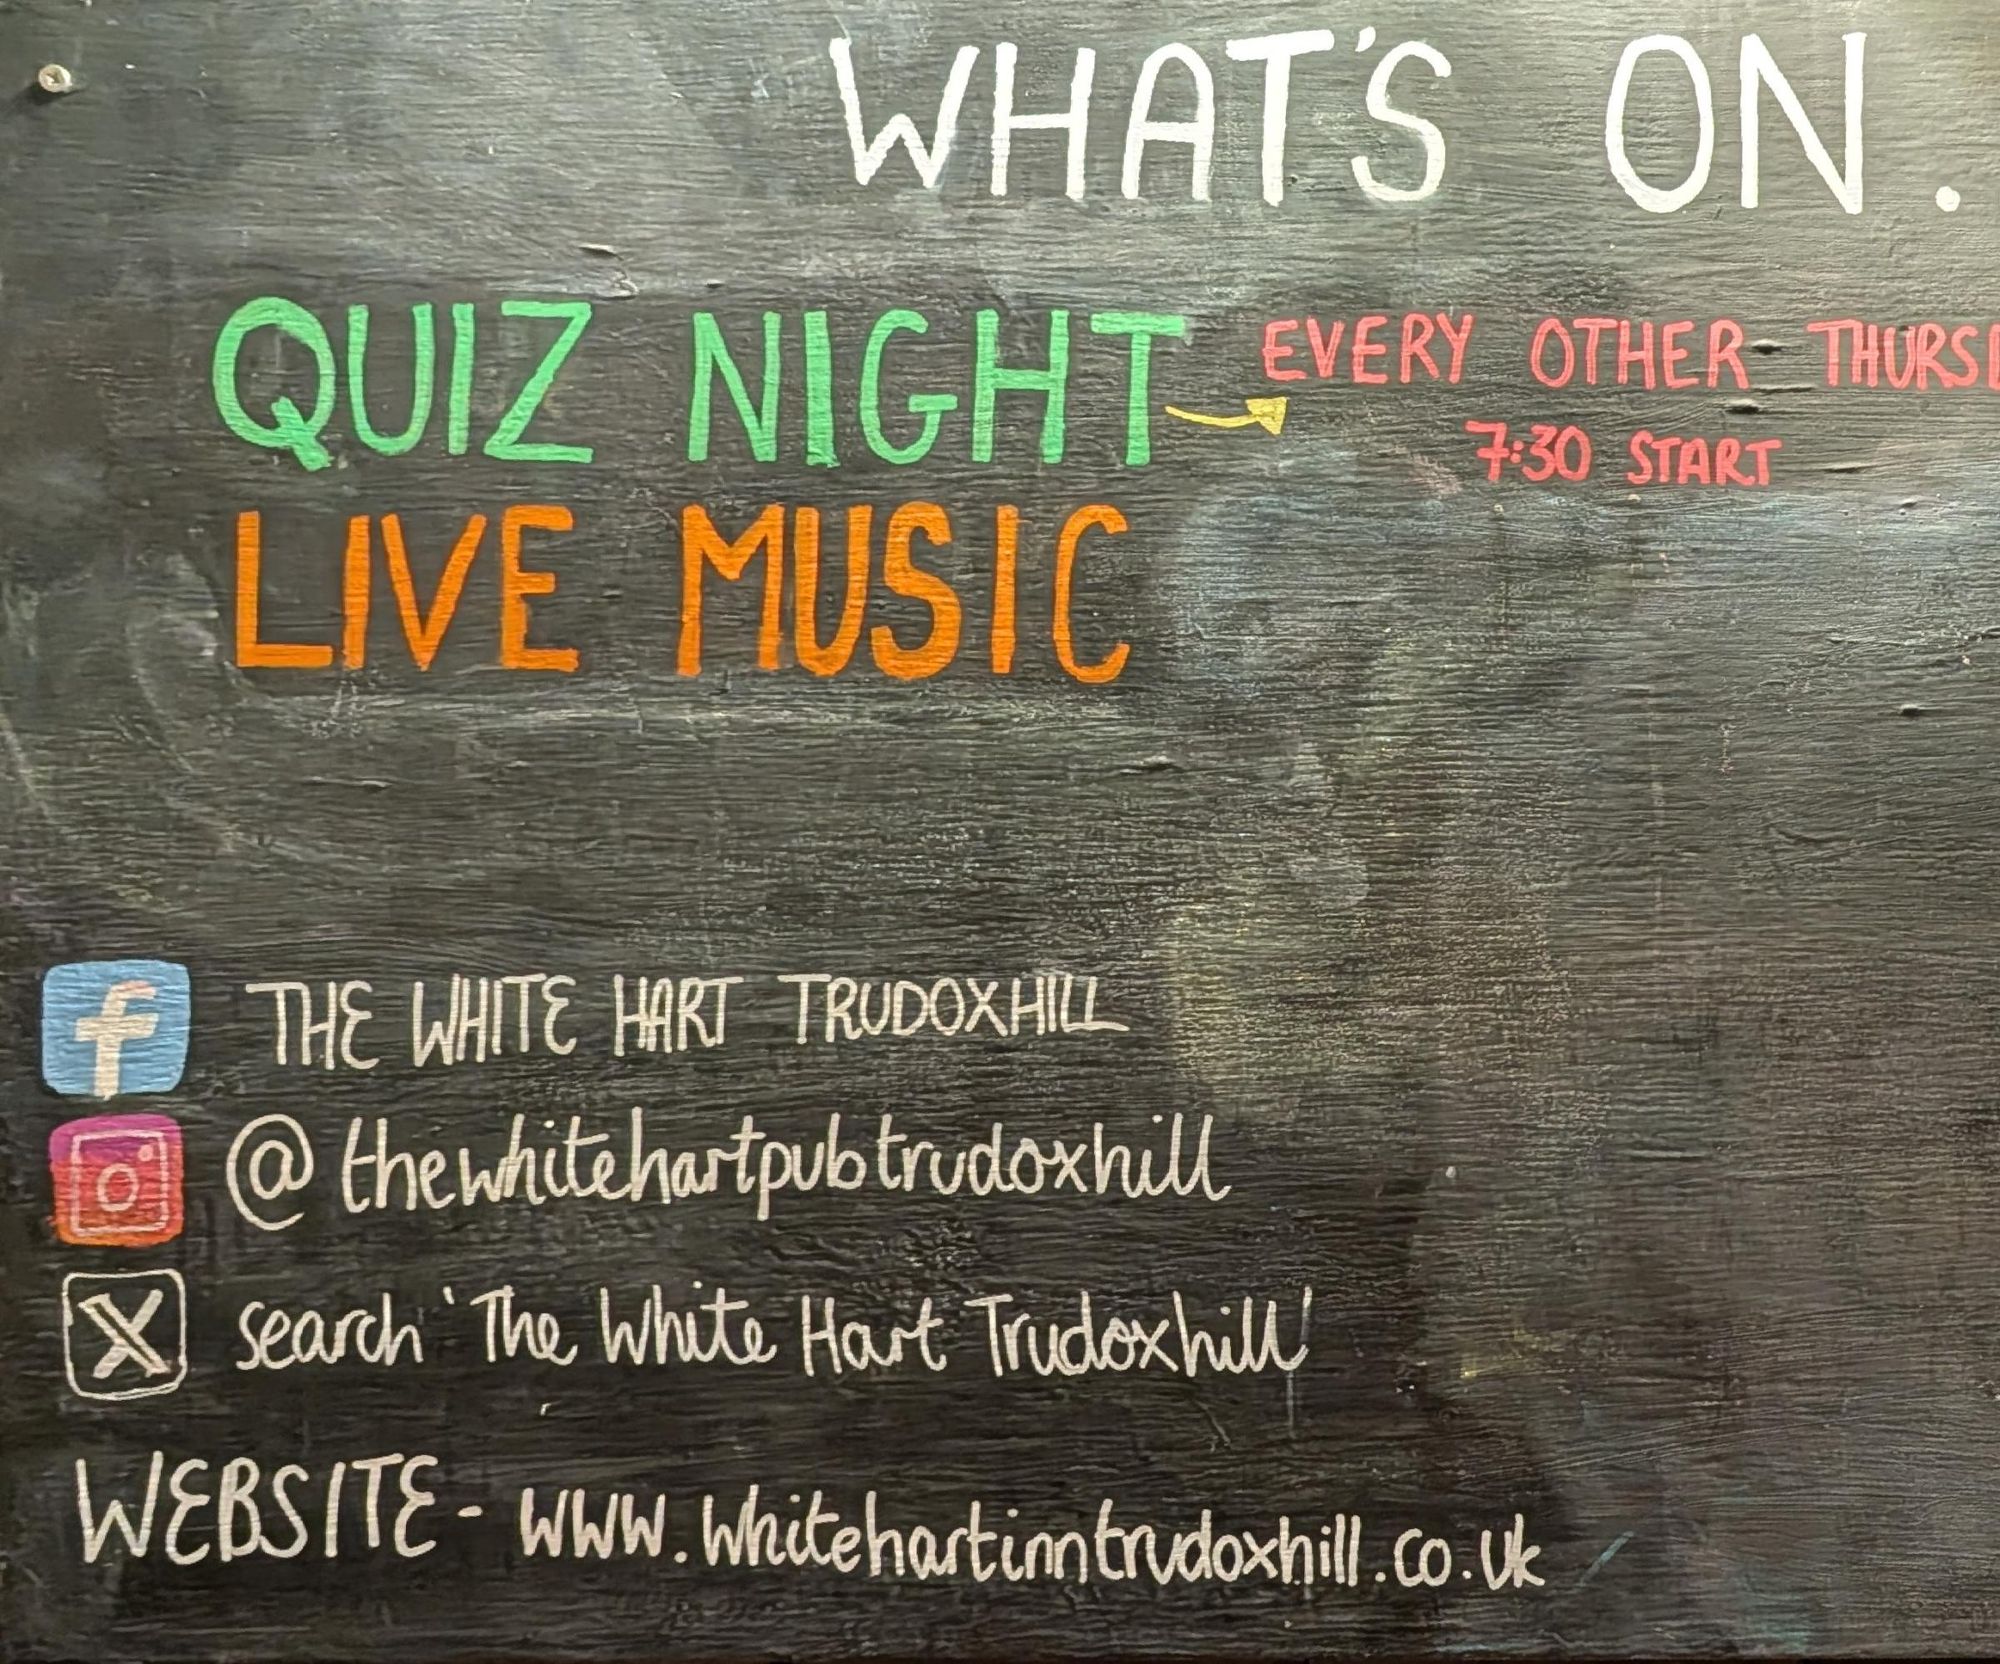 WHAT'S ON.
QUIZ NIGHT EVERY OTHER THURSD
7:30 START
LIVE MUSIC
f THE WHITE HART TRUDOXHILL
@thewhitehartpubtrudoxhill
X search 'The White Hart Trudoxhill'
WEBSITE - www.whitehartinntrudoxhill.co.uk